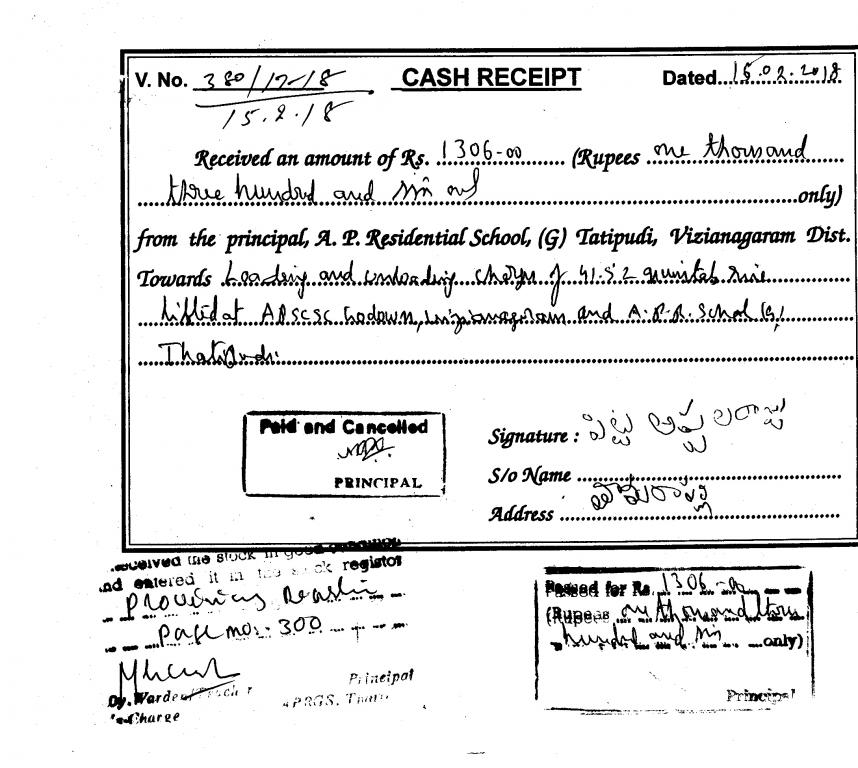 V. No. 380/17-18 CASH RECEIPT Dated 15.02.2018
15.2.18
Received an amount of Rs. 1306-00 (Rupees one thousand
three hundred and six only only)
from the principal, A. P. Residential School, (G) Tatipudi, Vizianagaram Dist.
Towards Loading and unloading charges of 41.52 quintals rice
lifted at APSCSC Godown, Vizianagaram and A.P.R. School (G)
Thatipudi.
Paid and Cancelled
PRINCIPAL
Signature : పిట్ట అప్పలరాజు
S/o Name
Address
Received the stock in good condition
and entered it in the stock register
Provisions
page no: 300
Principal
Dy. Warden/Teacher APRGS.
In Charge
Passed for Rs. 1306-00
(Rupees one thousand three
hundred and six only)
Principal